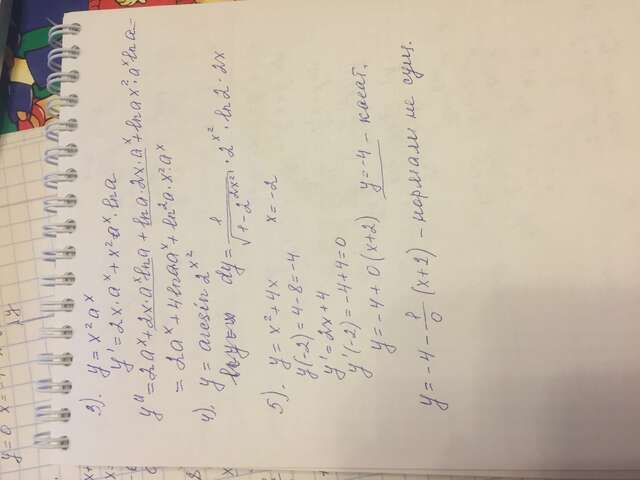 3). y = x² aˣ
y' = 2x · aˣ + x² · aˣ · ln a
y'' = 2aˣ + 2x · aˣ ln a + ln a · 2x · aˣ + ln a x² · aˣ ln a =
= 2aˣ + 4 ln a aˣ + ln² a · x² · aˣ
4). y = arcsin 2^(x²)
dy = 1/√(1 - 2^(2x²)) · 2^(x²) · ln 2 · 2x
5). y = x² + 4x x = -2
y(-2) = 4 - 8 = -4
y' = 2x + 4
y'(-2) = -4 + 4 = 0
y = -4 + 0 (x+2) y = -4 - касат.
y = -4 - 1/0 (x+2) - нормали не сущ.
y=0 x=